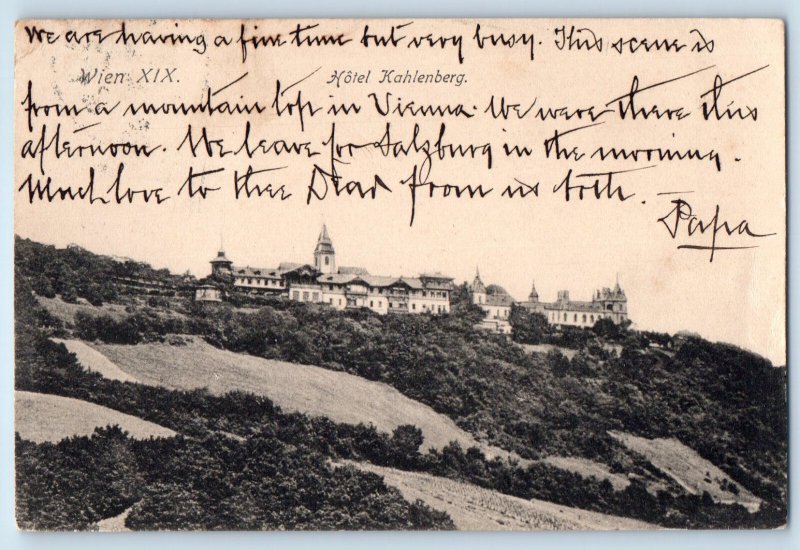 We are having a fine time but very busy. This scene is
Wien XIX. Hôtel Kahlenberg.
from a mountain top in Vienna. We were there this
afternoon. We leave for Salzburg in the morning.
Much love to thee Dear from us both.
Papa